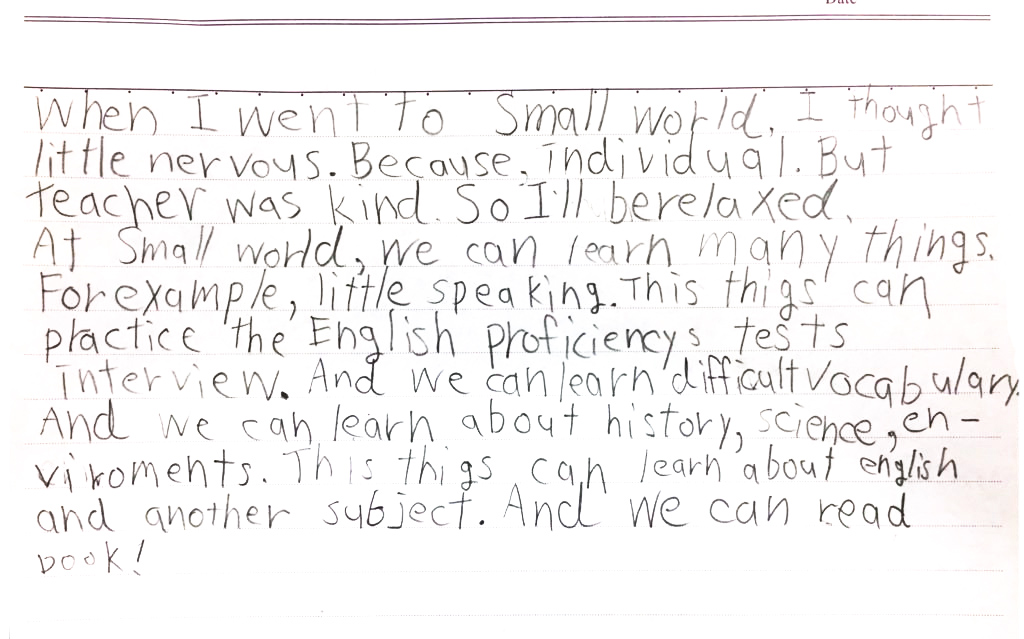 Date
When I went to Small world, I thought
little nervous. Because, individual. But
teacher was kind. So I'll berelaxed.
At Small world, we can learn many things.
Forexample, little speaking. This thigs can
practice the English proficiencys tests
interview. And we can learn difficult vocabulary.
And we can learn about history, science, en-
viroments. This thigs can learn about english
and another subject. And we can read
book!